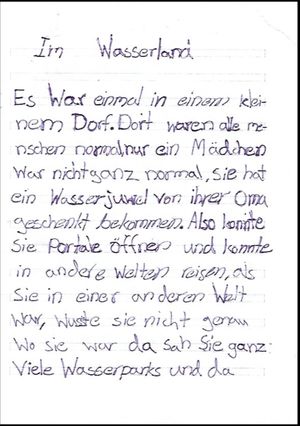 Im Wasserland
Es War einmal in einem klei-
nem Dorf. Dort waren alle me-
nschen normal, nur ein Mädchen
war nicht ganz normal, sie hat
ein Wasserjuwel von ihrer Oma
geschenkt bekommen. Also konnte
Sie Portale öffnen und konnte
in andere Welten reisen, als
Sie in einer anderen Welt
war, wuste sie nicht genau
Wo sie war da sah Sie ganz
Viele Wasserparks und da